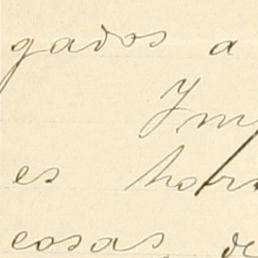 gados a
Im
es hor
cosas, de